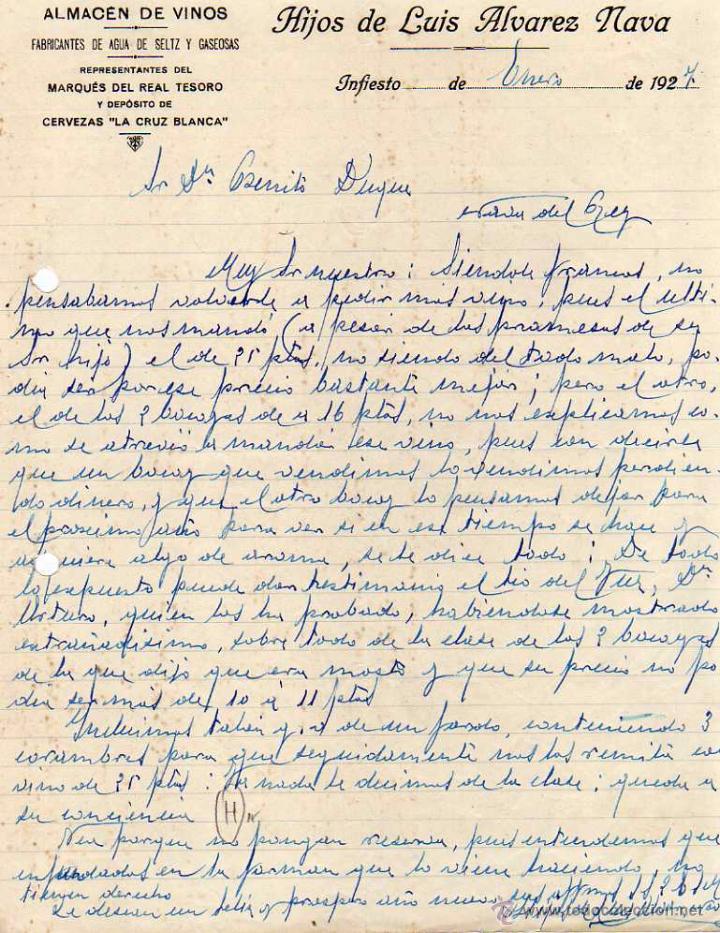 ALMACÉN DE VINOS
FABRICANTES DE AGUA DE SELTZ Y GASEOSAS
REPRESENTANTES DEL
MARQUÉS DEL REAL TESORO
Y DEPÓSITO DE
CERVEZAS "LA CRUZ BLANCA"
Hijos de Luis Alvarez Nava
Infiesto de Enero de 1927.
Sr Dn Benito Duque
del Rey
Muy Sr nuestro: Siendole francos, no
pensabamos volverle a pedir mas vino, pues el ulti-
mo que nos mandó (a pesar de las promesas de su
Sr hijo) el de 25 ptas, no siendo del todo malo, po-
dia ser por ese precio bastante mejor; pero el otro,
el de los 2 bocoyes de a 16 ptas, no nos explicamos co-
mo se atrevió a mandar ese vino, pues con decirle
que un bocoy que vendimos lo vendimos perdien-
do dinero, y que el otro bocoy lo pensamos dejar para
el proximo año para ver si en ese tiempo se hace y
adquiere algo de aroma, se le dice todo; De todo
lo expuesto puede dar testimonio el tio del Dn
Arturo, quien los ha probado, habiendose mostrado
extrañadisimo, sobre todo de la clase de los 2 bocoyes
de la que dijo que era mosto y que su precio no po
dia ser mas de 10 a 11 ptas
Incluimos talon g.v de un fardo, conteniendo 3
corambres para que seguidamente nos los remita con
vino de 25 ptas; nada le decimos de la clase; queda a
su conciencia H
porque no pongan reserva, pues entendemos que
fundados en la forma en que lo viene haciendo, no
tienen derecho
Le desean un feliz y prospero año nuevo sus affmos
www.todocoleccion.net